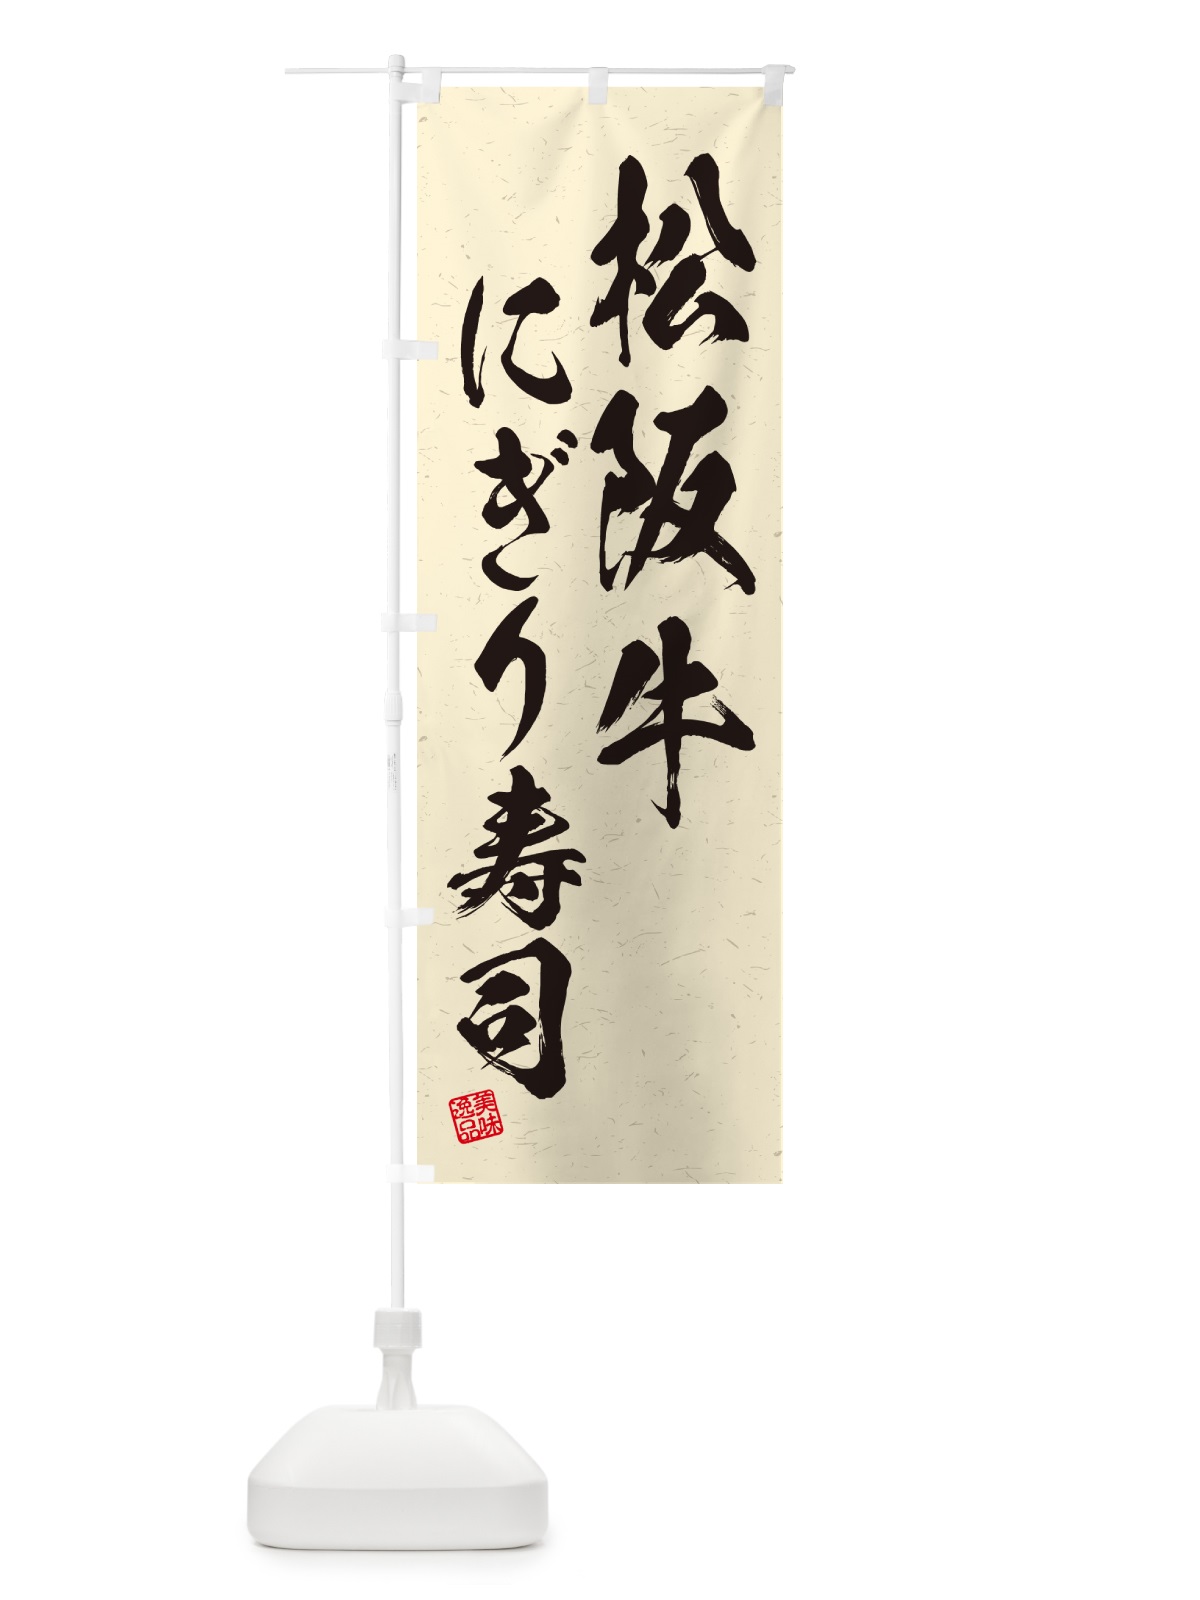 松阪牛
にぎり寿司
美味
逸品